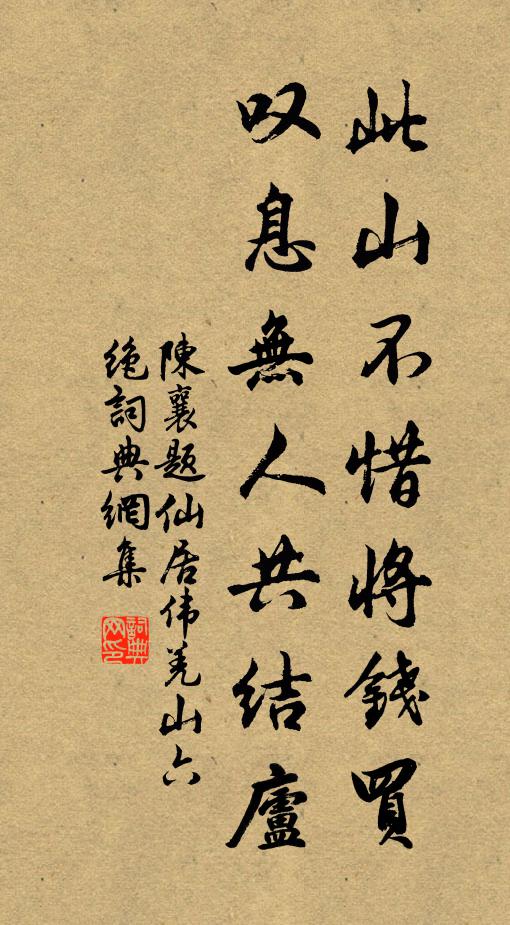 此山不惜將錢買
叹息無人共結廬
陳襄題仙居伟羌山六
绝詞典網集
詞典网印